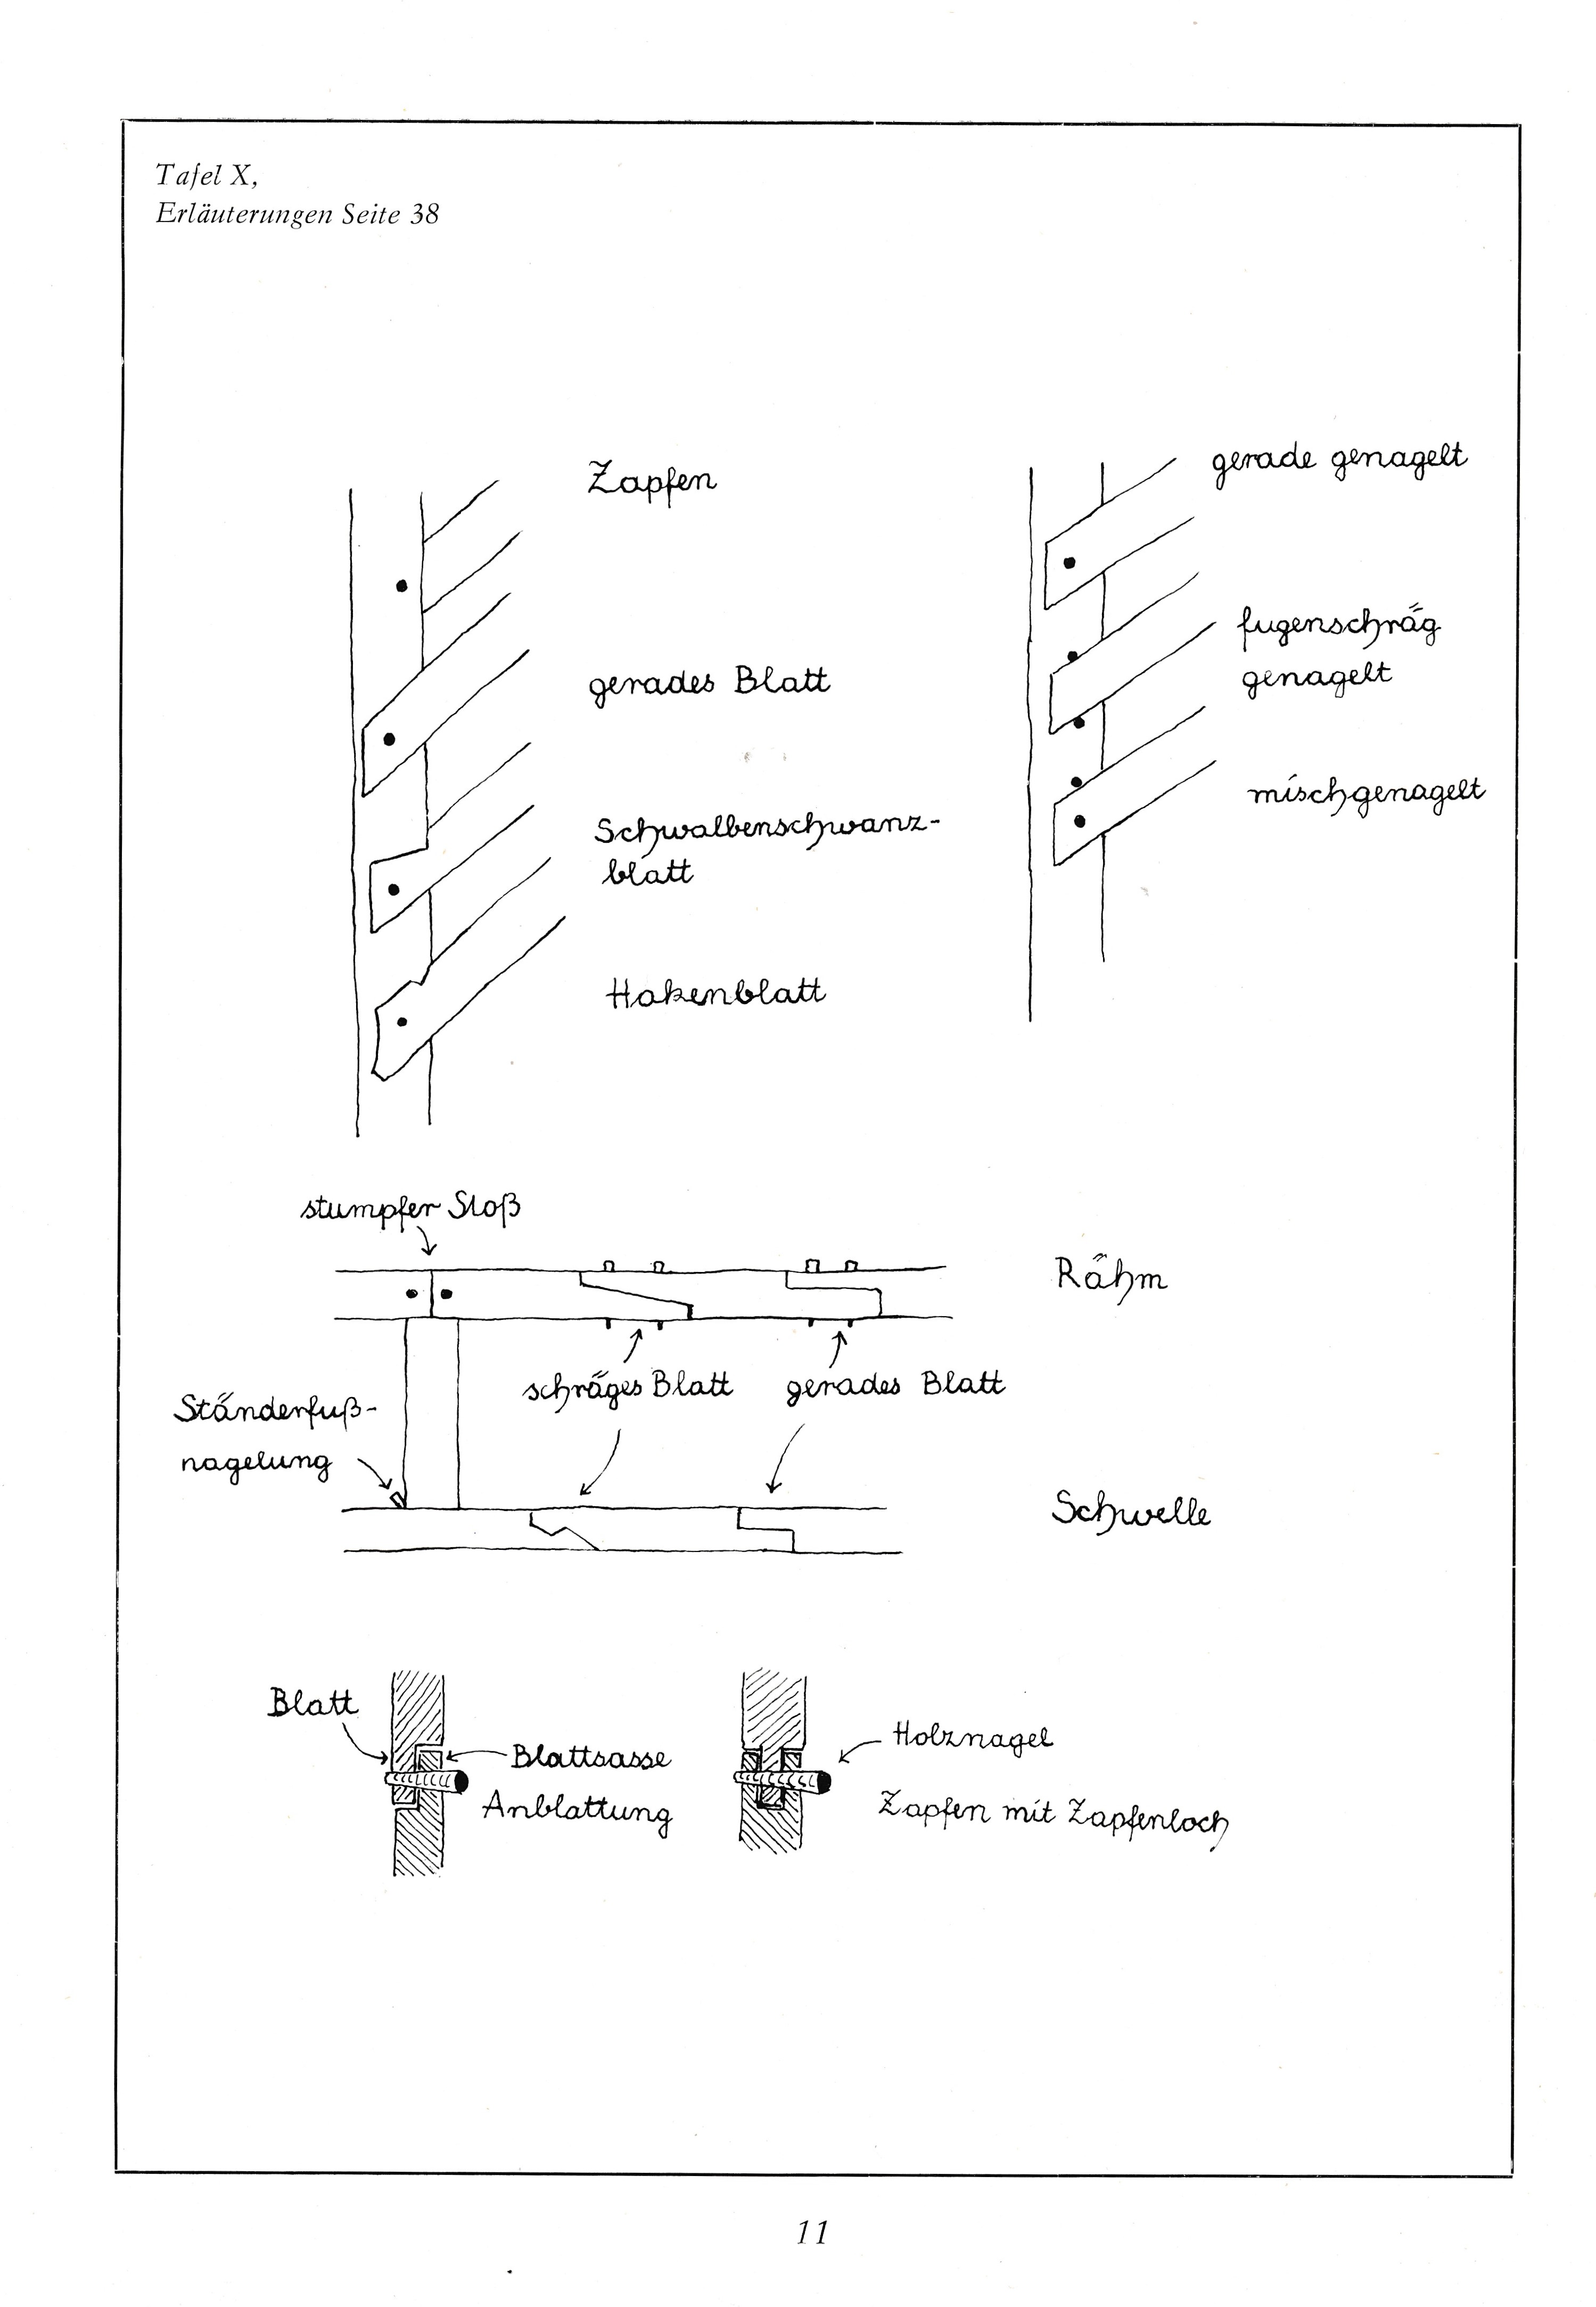 Tafel X,
Erläuterungen Seite 38
Zapfen
gerades Blatt
Schwalbenschwanz-
blatt
Hakenblatt
gerade genagelt
fugenschräg
genagelt
mischgenagelt
stumpfer Stoß
Rähm
schräges Blatt
gerades Blatt
Ständerfuß-
nagelung
Schwelle
Blatt
Blattsasse
Anblattung
Holznagel
Zapfen mit Zapfenloch
11